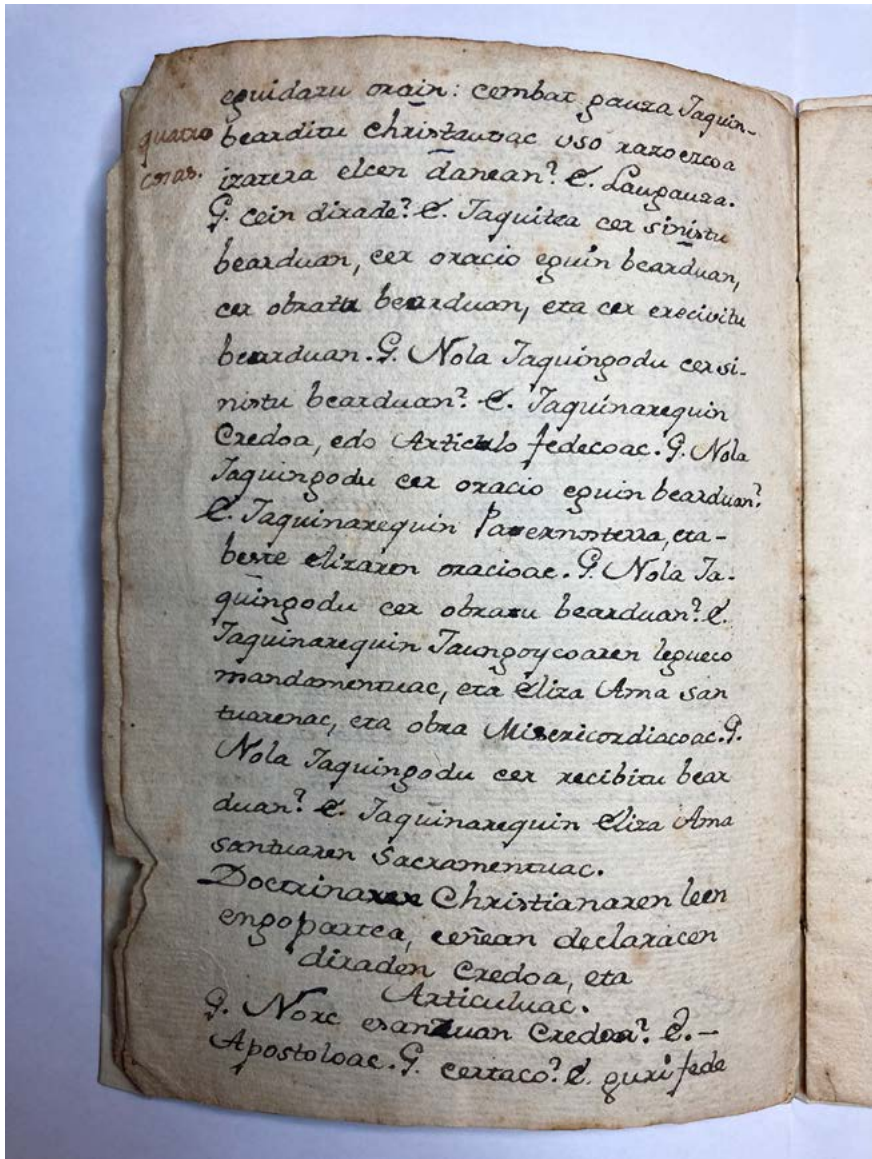 eguidazu orain: cembat gauza Jaquin-
quatro
cosas.
bearditu christauvac uso razoezcoa
izatera elcen danean? E. Laugauza.
G. cein dirade? E. Jaquitea cer sinistu
bearduan, cer oracio eguin bearduan,
cer obratu bearduan, eta cer erecivitu
bearduan. G. Nola Jaquingodu cer si-
nistu bearduan? E. Jaquinarequin
Credoa, edo Articulo fedecoac. G. Nola
Jaquingodu cer oracio eguin bearduan?
E. Jaquinarequin Paternosterra, eta-
beste elizaren oracioac. G. Nola Ja-
quingodu cer obratu bearduan? E.
Jaquinarequin Jaungoycoaren legueco
mandamentuac, eta Eliza Ama san
tuarenac, eta obra Misericordiacoac. G.
Nola Jaquingodu cer recibitu bear
duan? E. Jaquinarequin Eliza Ama
santuaren Sacramentuac.
Doctrinaren Christianaren leen
engo partea, ceñean declaracen
diraden Credoa, eta
Articuluac.
G. Norc esanzuan Credoa? E. -
Apostoloac. G. certaco? E. guri fede